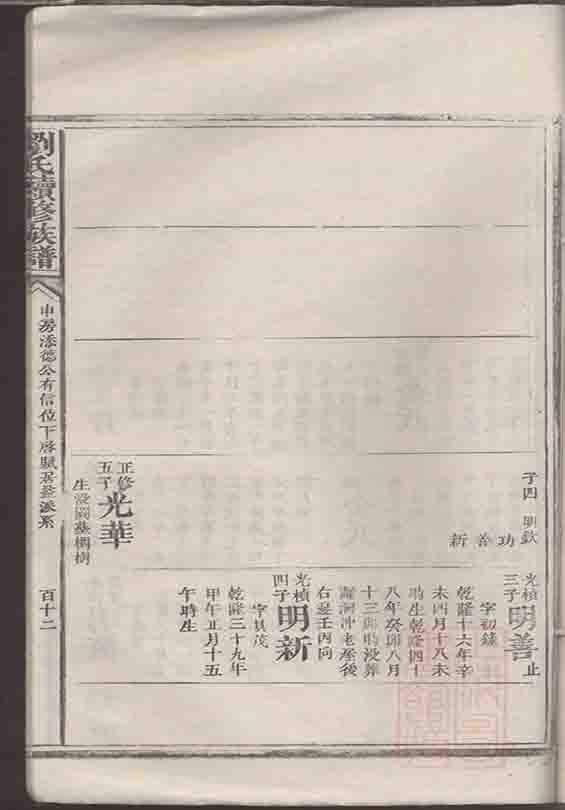 子四 明欽
功 善 新
光楨
三子 明善 止
字初錄
乾隆十六年辛
未四月十八未
時生乾隆四十
八年癸卯八月
十三卯時沒葬
冲老屋後
右邊壬丙向
光楨
四子 明新
字其茂
乾隆三十九年
甲午正月十五
午時生
正修
五子 光華
生沒闕墓桐樹
劉氏續修族譜
申房添德公有信位下啓賦居 派系
百十二